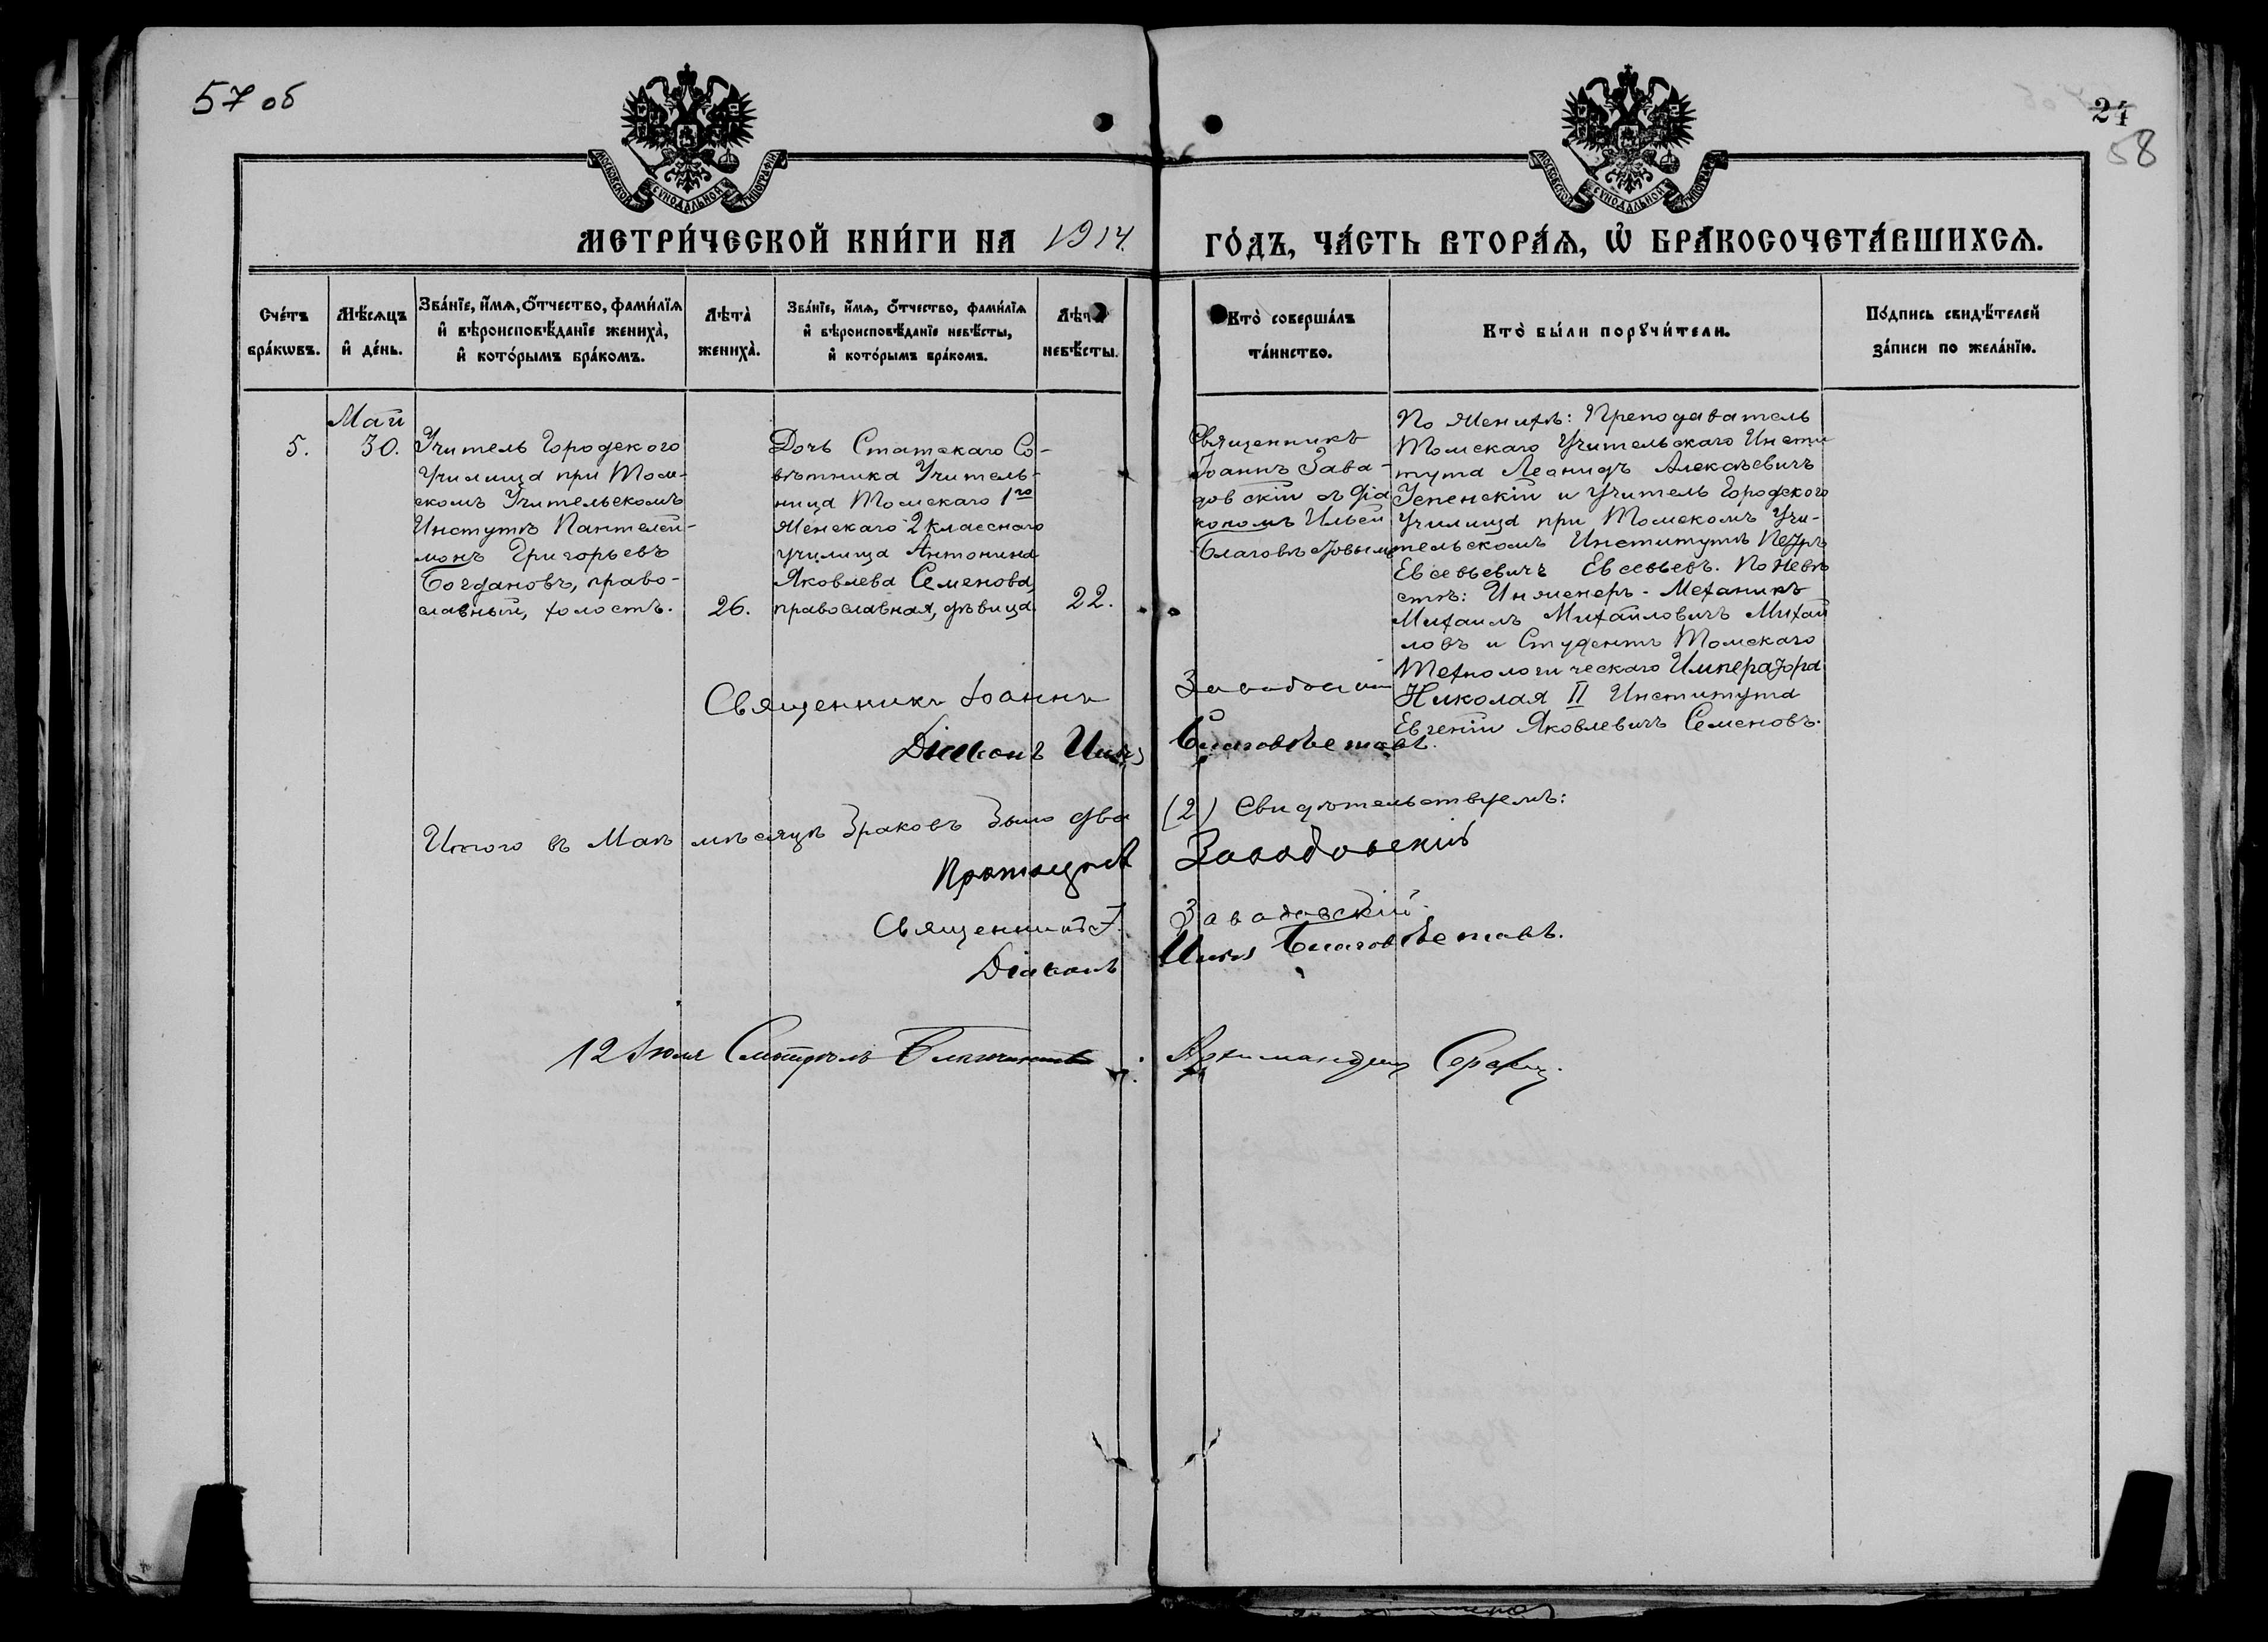 57 об
24
58
МОСКОВСКОЙ СѴНОДАЛЬНОЙ ТИПОГРАФІИ
МОСКОВСКОЙ СѴНОДАЛЬНОЙ ТИПОГРАФІИ
МЕТРИ́ЧЕСКОЙ КНИ́ГИ НА 1914. ГО́ДЪ, ЧА́СТЬ ВТОРА́Ѧ, Ѡ҆ БРАКОСОЧЕТА́ВШИХСѦ.
Сче́тъ бра́кѡвъ.
Мѣ́сѧцъ и҆ де́нь.
Зва́нїе, и҆́мѧ, ѻ҆́тчество, фами́лїѧ и҆ вѣроисповѣ́данїе жениха̀, и҆ кото́рымъ бра́комъ.
Лѣта̀ жениха̀.
Зва́нїе, и҆́мѧ, ѻ҆́тчество, фами́лїѧ и҆ вѣроисповѣ́данїе невѣ́сты, и҆ кото́рымъ бра́комъ.
Лѣта̀ невѣ́сты.
Кто̀ соверша́лъ та́инство.
Кто̀ бы́ли порꙋчи́тели.
По́дпись свидѣ́телей за́писи по жела́нїю.
5.
Май
30.
Учитель Городского
Училища при Том-
скомъ Учительскомъ
Инстутѣ Пантелей-
монъ Григорьевъ
Богдановъ, право-
славный, холостъ.
26.
Дочь Статскаго Со-
вѣтника Учитель-
ница Томскаго 1го
Женскаго 2 класснаго
училища Антонина
Яковлева Семенова,
православная, дѣвица.
22.
Священникъ
Іоаннъ Зава-
довскій съ діа
кономъ Ильей
Благовѣстовымъ
По Женихѣ: Преподаватель
Томскаго Учительскаго Инсти
тута Леонидъ Алексѣевичъ
Успенскій и Учитель Городского
Училища при Томскомъ Учи-
тельскомъ Институтѣ Петръ
Евсевьевичъ Евсевьевъ. По Невѣ
стѣ: Инженеръ-Механикъ
Михаилъ Михайловичъ Михай
ловъ и Студентъ Томскаго
Технологическаго Императора
Николая II Института
Евгеній Яковлевичъ Семеновъ.
Священникъ Іоаннъ Заводовскій
Діаконъ Илья Благовѣстовъ.
Итого въ Маѣ мѣсяцѣ браковъ было два (2) Свидѣтельствуемъ:
Протоіерей Заводовскій
Священникъ І. Заводовскій.
Діаконъ Илья Благовѣстовъ.
12 Іюля Смотрѣлъ Благочинный Архимандритъ